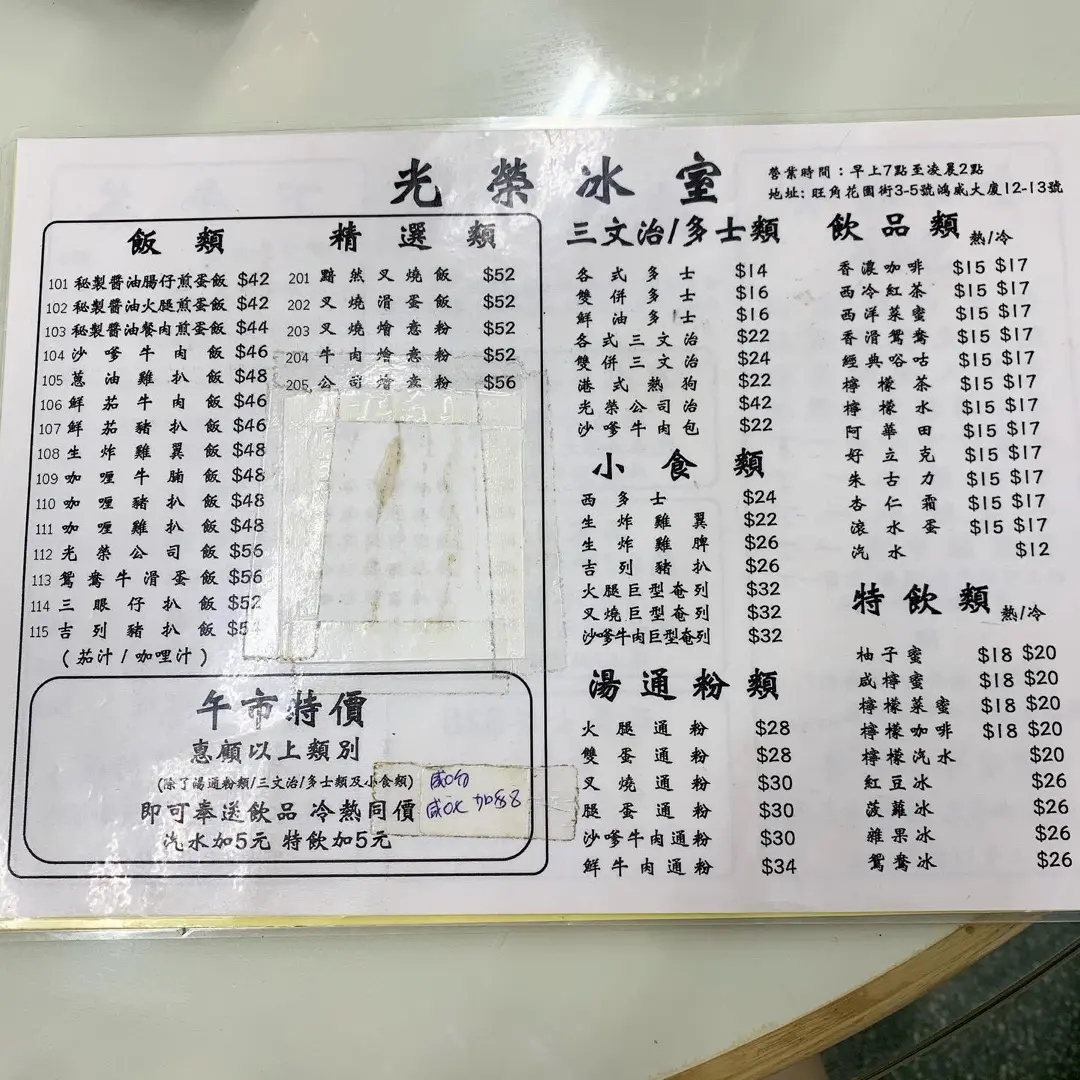 光榮冰室
營業時間：早上7點至凌晨2點
地址: 旺角花園街3-5號鴻威大廈12-13號
飯類
101 秘製醬油腸仔煎蛋飯 $42
102 秘製醬油火腿煎蛋飯 $42
103 秘製醬油餐肉煎蛋飯 $44
104 沙嗲牛肉飯 $46
105 蔥油雞扒飯 $48
106 鮮茄牛肉飯 $46
107 鮮茄豬扒飯 $46
108 生炸雞翼飯 $48
109 咖喱牛腩飯 $48
110 咖喱豬扒飯 $48
111 咖喱雞扒飯 $48
112 光榮公司飯 $56
113 鴛鴦牛滑蛋飯 $56
114 三眼仔扒飯 $52
115 吉列豬扒飯 $54
(茄汁/咖哩汁)
精選類
201 黯然叉燒飯 $52
202 叉燒滑蛋飯 $52
203 叉燒燴意粉 $52
204 牛肉燴意粉 $52
205 公司燴意粉 $56
午市特價
惠顧以上類別
(除了湯通粉類/三文治/多士類及小食類)
即可奉送飲品 冷熱同價
汽水加5元 特飲加5元
加$8
三文治/多士類
各式多士 $14
雙併多士 $16
鮮油多士 $16
各式三文治 $22
雙併三文治 $24
港式熱狗 $22
光榮公司治 $42
沙嗲牛肉包 $22
小食類
西多士 $24
生炸雞翼 $22
生炸雞髀 $26
吉列豬扒 $26
火腿巨型奄列 $32
叉燒巨型奄列 $32
沙嗲牛肉巨型奄列 $32
湯通粉類
火腿通粉 $28
雙蛋通粉 $28
叉燒通粉 $30
腿蛋通粉 $30
沙嗲牛肉通粉 $30
鮮牛肉通粉 $34
飲品類 熱/冷
香濃咖啡 $15 $17
西冷紅茶 $15 $17
西洋菜蜜 $15 $17
香滑鴛鴦 $15 $17
經典唂咕 $15 $17
檸檬茶 $15 $17
檸檬水 $15 $17
阿華田 $15 $17
好立克 $15 $17
朱古力 $15 $17
杏仁霜 $15 $17
滾水蛋 $15 $17
汽水 $12
特飲類 熱/冷
柚子蜜 $18 $20
咸檸蜜 $18 $20
檸檬菜蜜 $18 $20
檸檬咖啡 $18 $20
檸檬汽水 $20
紅豆冰 $26
菠蘿冰 $26
雜果冰 $26
鴛鴦冰 $26